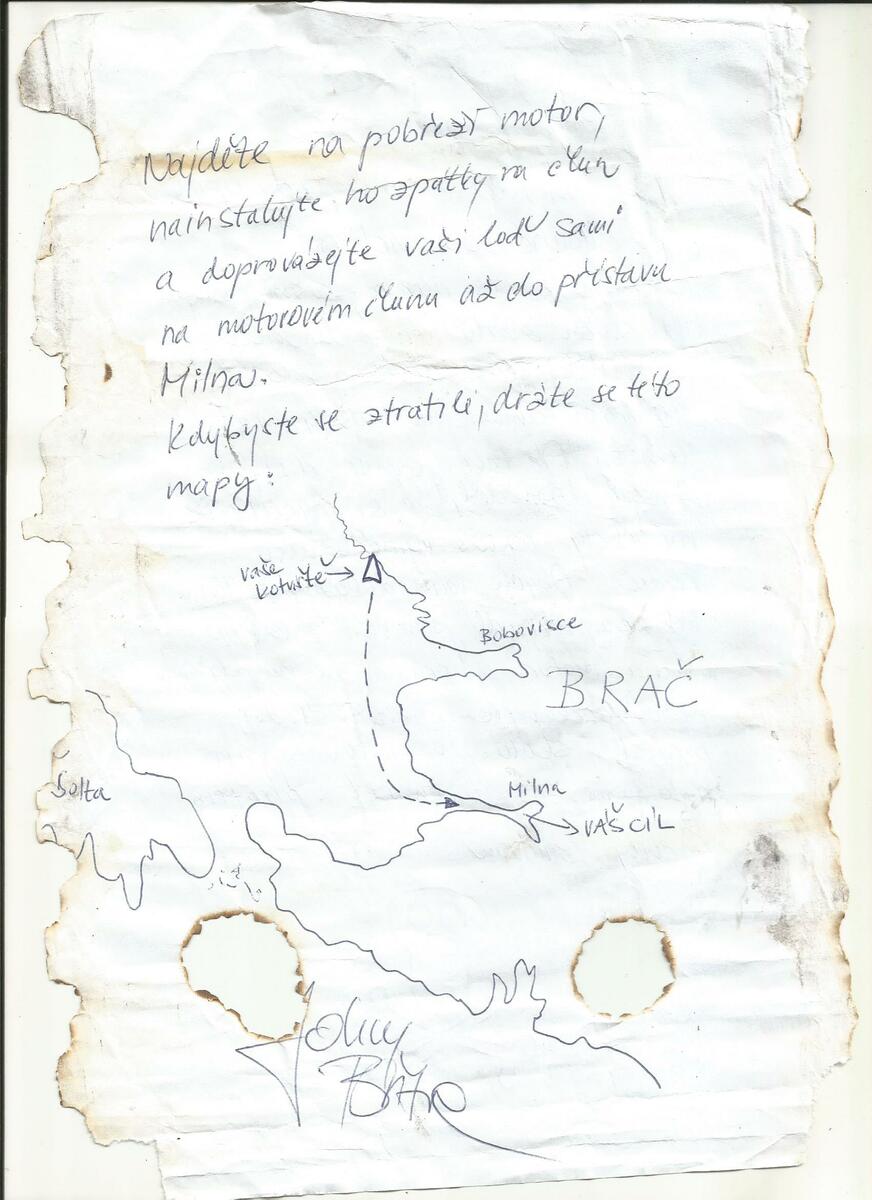 Najděte na pobřeží motor,
nainstalujte ho zpátky na člun
a doprovázejte vaši loď sami
na motorovém člunu až do přístavu
Milna.
Kdybyste se ztratili, držte se této
mapy:
vaše
kotviště
Bobovisce
BRAČ
Šolta
Milna
VÁŠ CÍL
Johny